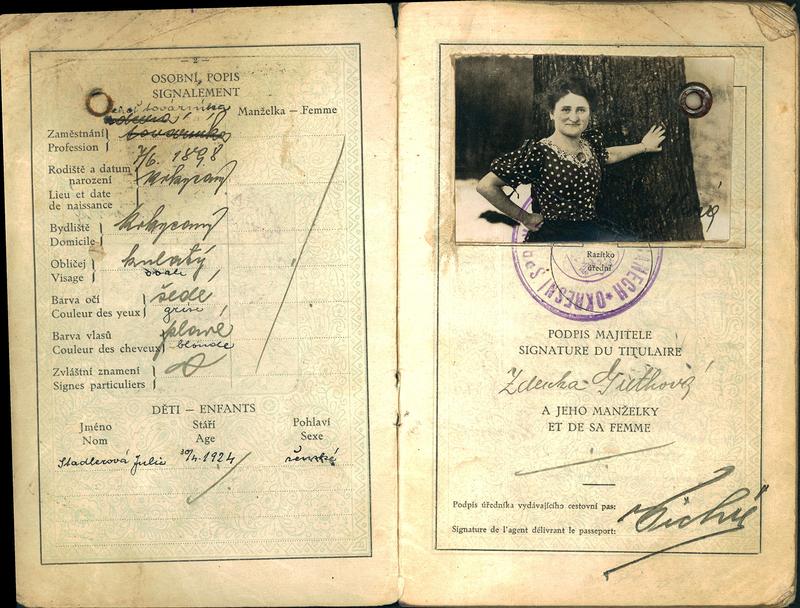 — 2 —
OSOBNÍ POPIS
SIGNALEMENT
Manželka — Femme
Zaměstnání
Profession
7/6. 1898
Rodiště a datum narození
Lieu et date de naissance
Bydliště
Domicile
Obličej
Visage
kulatý
ovale
Barva očí
Couleur des yeux
šedé
grise
Barva vlasů
Couleur des cheveux
plavé
blonde
Zvláštní znamení
Signes particuliers
DĚTI — ENFANTS
Jméno
Nom
Stáří
Age
Pohlaví
Sexe
Stadlerová Julie 30/4. 1924 ženské
Razítko
úřední
OKRESNÍ
PODPIS MAJITELE
SIGNATURE DU TITULAIRE
Zdenka
A JEHO MANŽELKY
ET DE SA FEMME
Podpis úředníka vydávajícího cestovní pas:
Signature de l'agent délivrant le passeport: